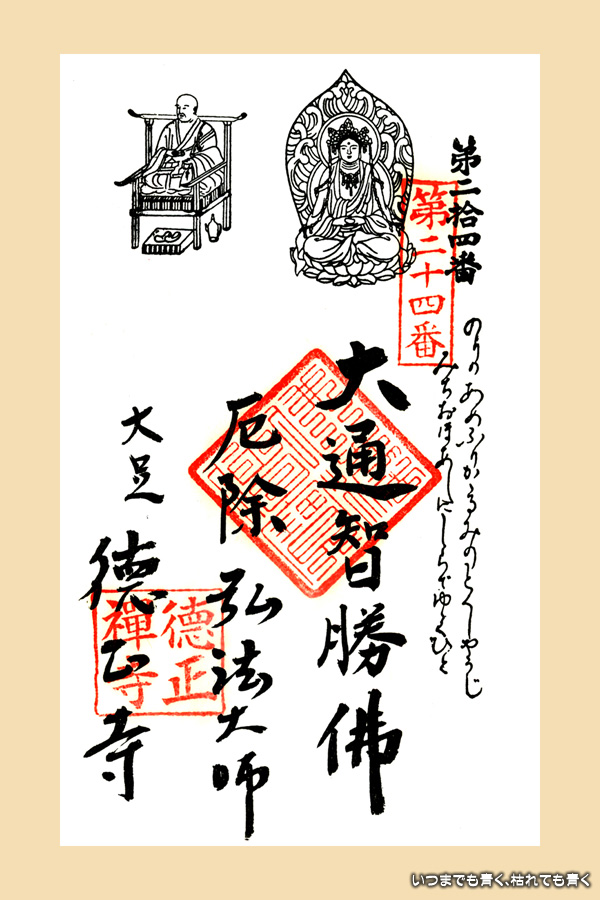 第二拾四番
第二十四番
のりのあめふりかゝるみのとくしやうじ
みちおほあしにしらでゆくひと
大通智勝佛
厄除弘法大師
大足
徳正寺
徳正
禪寺
いつまでも青く、枯れても青く